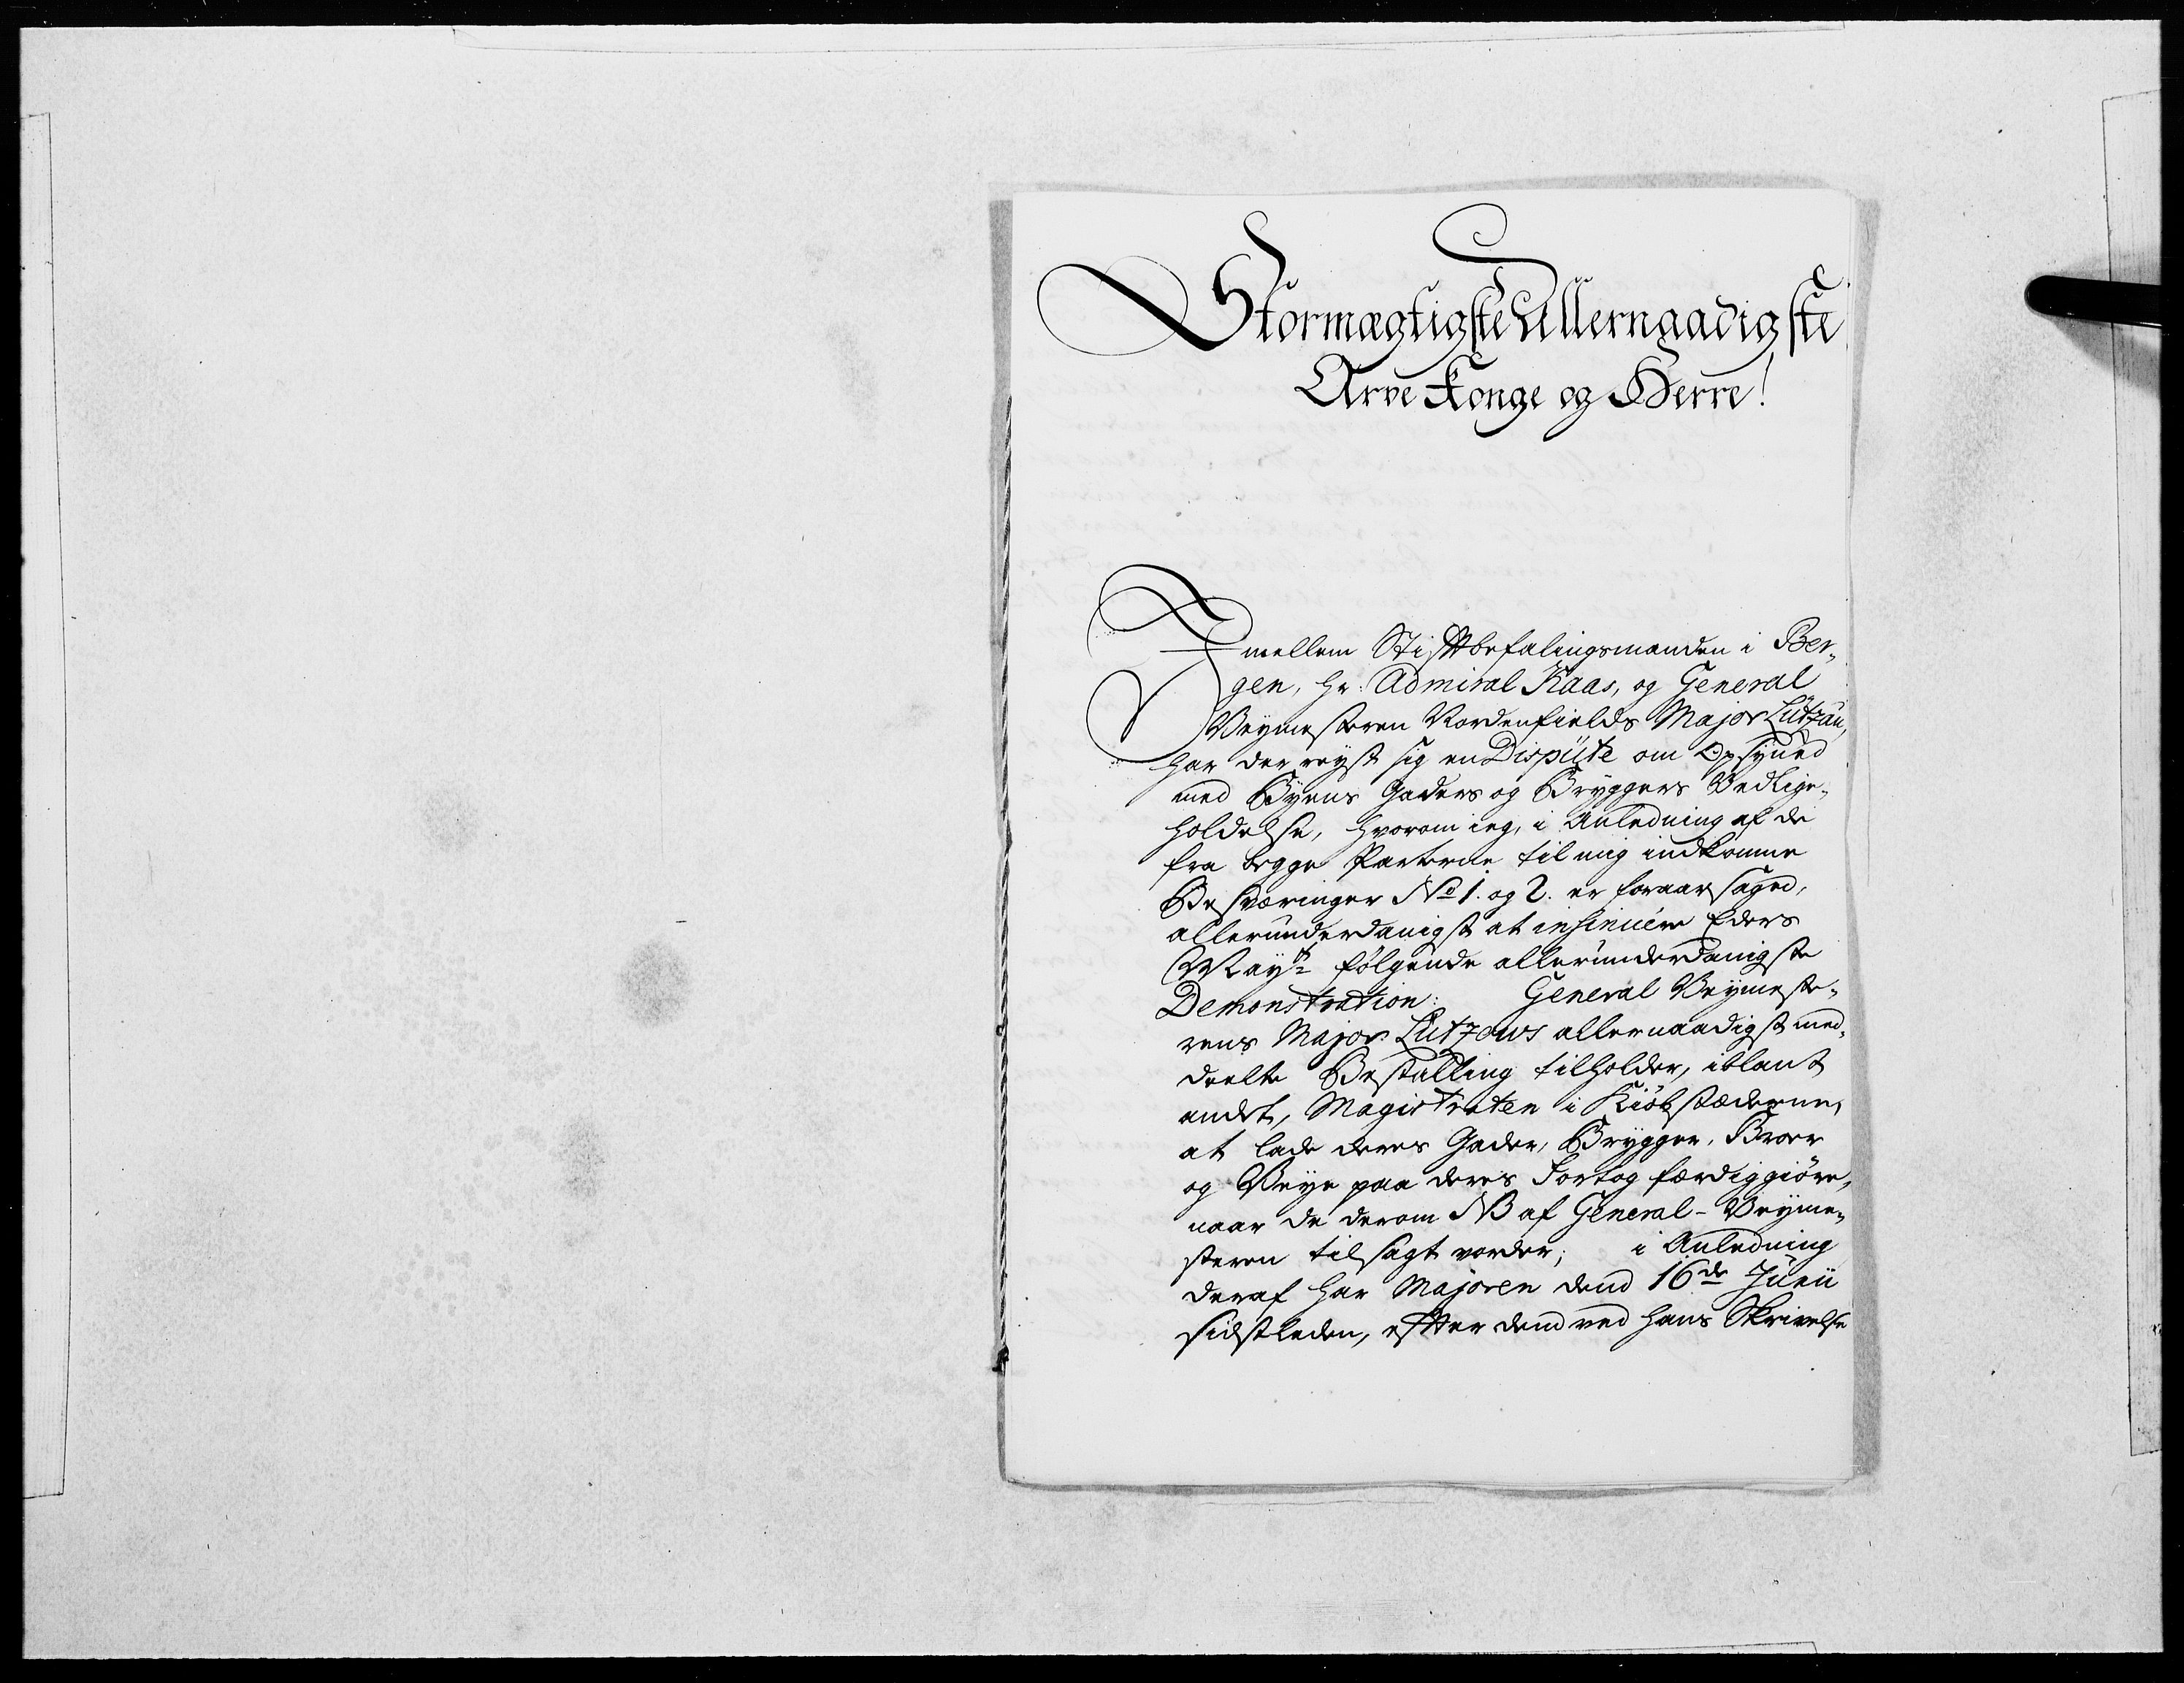 Stormægtigste Allernaadigste
Arve Konge og Herre!
Imellem Stiftbefalingsmanden i Ber„
gen, Hr: Admiral Kaas, og General
Veymesteren Nordenfields Major Lützau,
har der reyst sig en Dispüte om Opsyned
med Byens Gaders og Bryggers Vedlige„
holdelse, hvorom ieg, i Anledning af de
fra begge Parterne til mig indkomne
Besværinger No 1. og 2. er foraarsaged,
allerunderdanigst at insinuere Eders
Mayts følgende allerunderdanigste
Demonstration: General Veymeste„
rens Major Lützows allernaadigst med„
deelte Bestalling tilholder, iblant
andet, Magistraten i Kiøbstæderne,
at lade deres Gader, Brygger, Broer
og Veye paa deres Fortog færdiggiøre,
naar de derom NB af General-Veyme„
steren tilsagt vorder; i Anledning
deraf har Majoren dend 16de Junii
sidstleden, efter dend ved hans Skrivelse